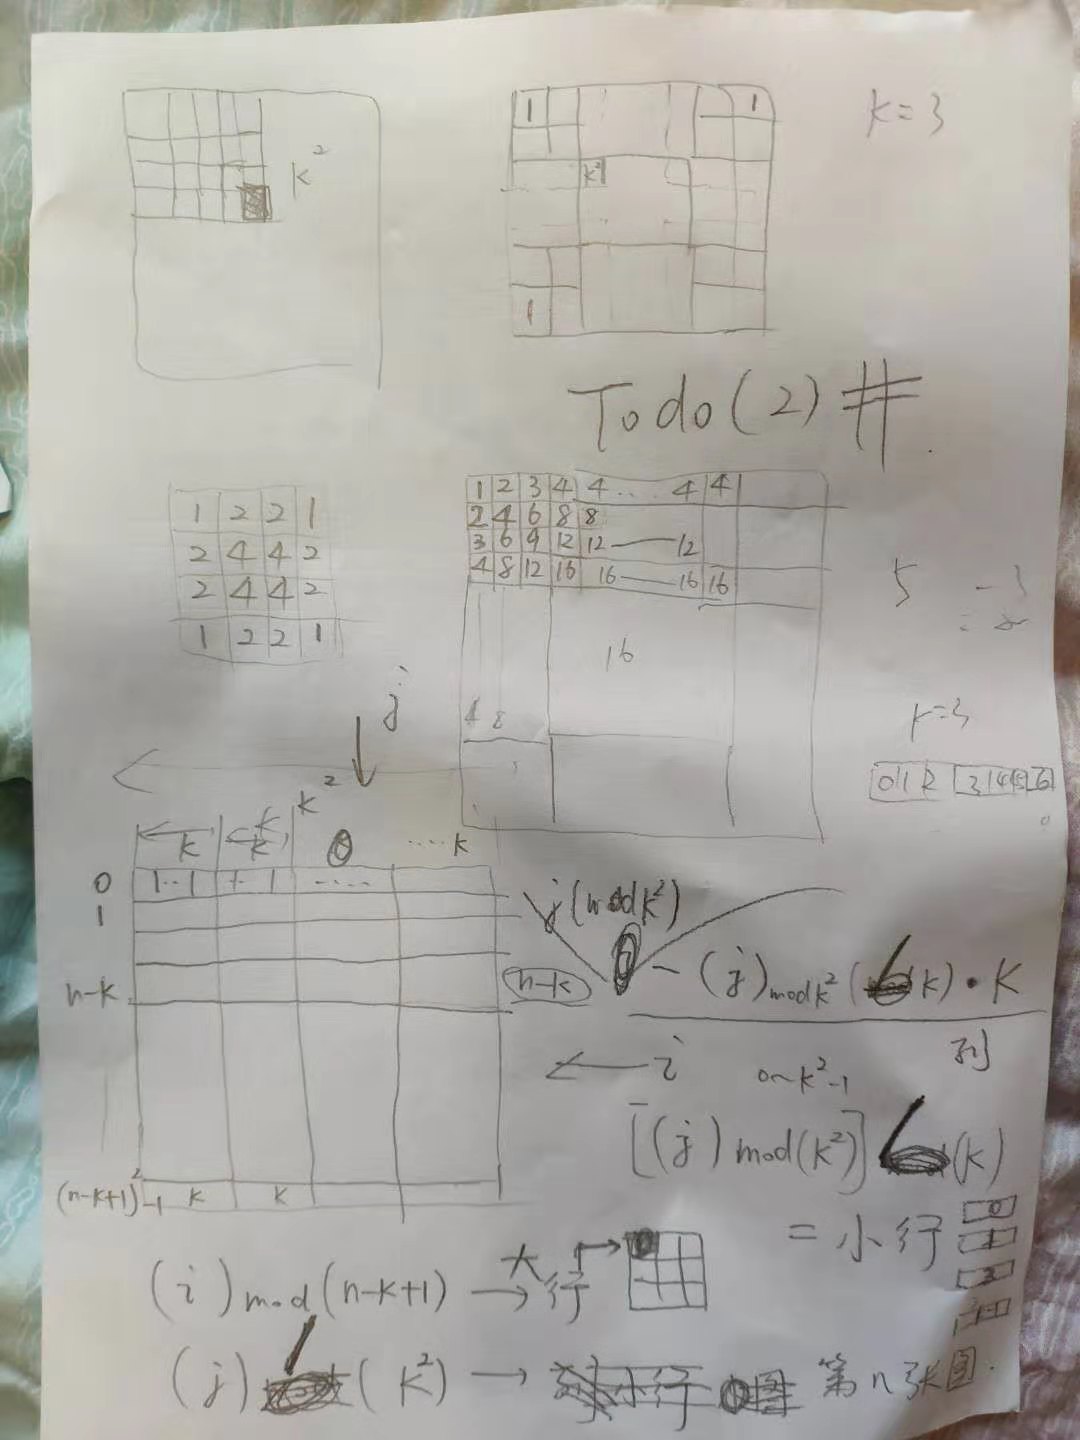 k²
1 1
k²
1
k=3
Todo(2)#
1 2 2 1
2 4 4 2
2 4 4 2
1 2 2 1
1 2 3 4 4 ... 4 4
2 4 6 8 8
3 6 9 12 12 — 12
4 8 12 16 16 — 16 16
16
4 8
5
k=3
j
k²
k k ....k
0 1..1 1 ....
1
n-k
(n-k+1)²-1 k k
j(mod k²)
n-k
-(j)mod k² (/k)·k
列
← i 0~k²-1
[(j) mod(k²)] / (k)
= 小行 0
1
2
(i) mod (n-k+1) → 大行
(j) / (k²) → 第n张图